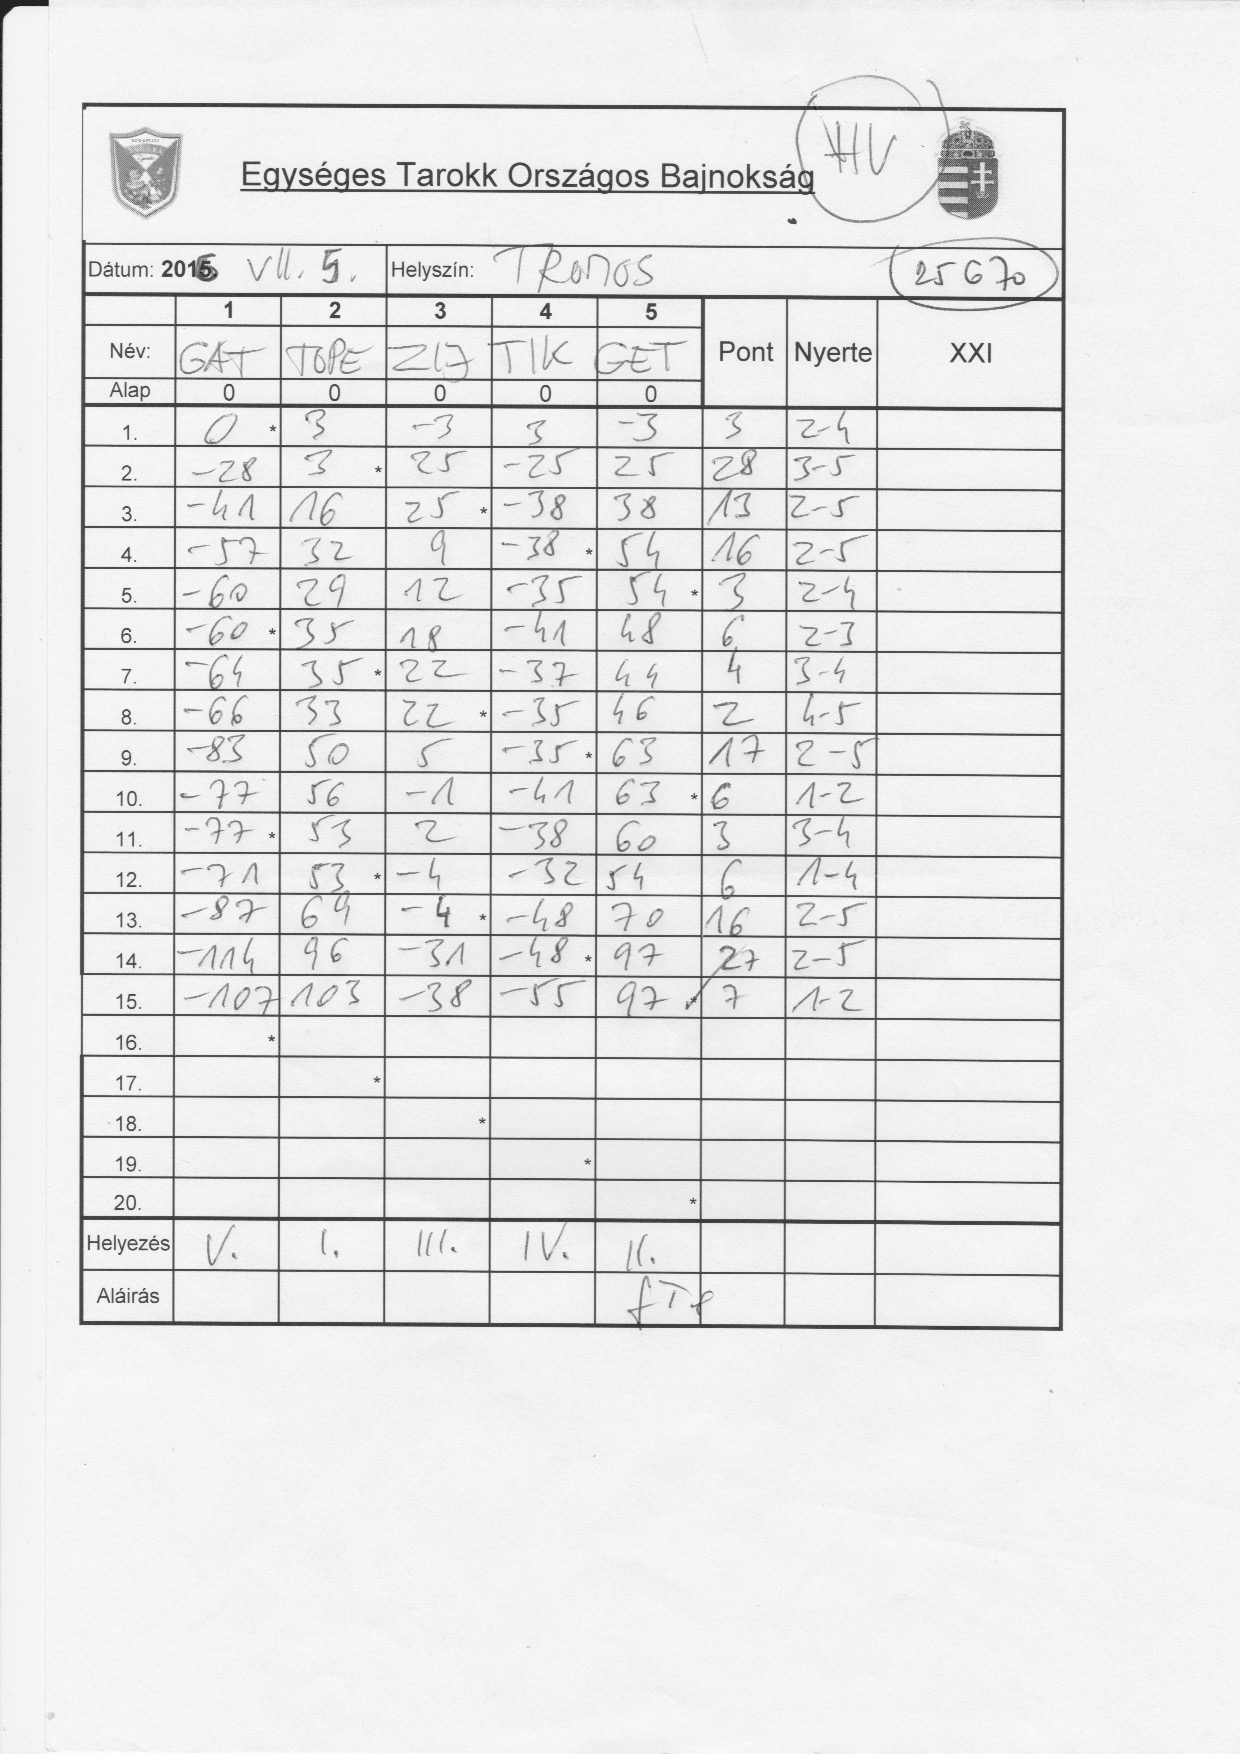 Egységes Tarokk Országos Bajnokság
Dátum: 2016 VII. 5. Helyszín: TRomos 25670
1 2 3 4 5
Név: GAT TOPE ZIJ TIK GET Pont Nyerte XXI
Alap 0 0 0 0 0
1. 0 * 3 -3 3 -3 3 2-4
2. -28 3 * 25 -25 25 28 3-5
3. -41 16 25 * -38 38 13 2-5
4. -57 32 9 -38 * 54 16 2-5
5. -60 29 12 -35 54 * 3 2-4
6. -60 * 35 18 -41 48 6 2-3
7. -64 35 * 22 -37 44 4 3-4
8. -66 33 22 * -35 46 2 4-5
9. -83 50 5 -35 * 63 17 2-5
10. -77 56 -1 -41 63 * 6 1-2
11. -77 * 53 2 -38 60 3 3-4
12. -71 53 * -4 -32 54 6 1-4
13. -87 69 -4 * -48 70 16 2-5
14. -114 96 -31 -48 * 97 27 2-5
15. -107 103 -38 -55 97 * 7 1-2
16. *
17. *
18. *
19. *
20. *
Helyezés V. I. III. IV. II.
Aláírás